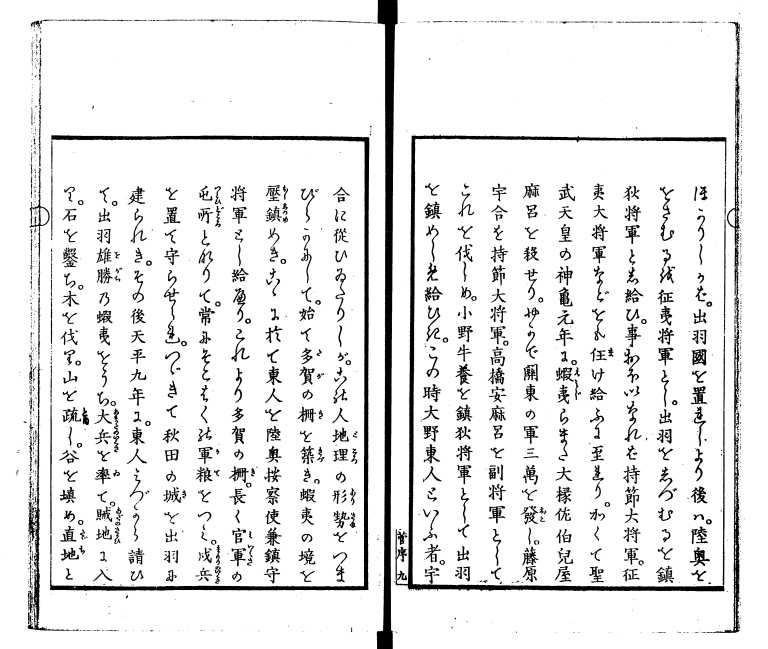 ほかりしかど。出羽國を置れしより後ハ。陸奥を
をさむるを征夷将軍とし。出羽を志づむるを鎮
狄将軍と志給ひ。事おほいなれば持節大将軍。征
夷大将軍などをも任け給ふに至れり。かくて聖
武天皇の神亀元年に。蝦夷らまた大掾佐伯兒屋
麻呂を殺せり。かゝで關東の軍三萬を發し。藤原
宇合を持節大将軍。高橋安麻呂を副将軍として
これを伐しめ。小野牛養を鎮狄将軍として出羽
を鎮めしめ給ひき。この時大野東人といふ者。宇
合に從ひゐたりしが。この人地理の形勢をつま
びらかにして。始て多賀の柵を築き。蝦夷の境を
壓鎮めき。こゝに於て東人を陸奥按察使兼鎮守
将軍とし給へり。これより多賀の柵。長く官軍の
屯所となりて。常にそこばくの軍粮をつミ。戍兵
を置て守らせらる。つぎて秋田の城を出羽に
建られき。その後天平九年に。東人みづから請ひ
て。出羽雄勝乃蝦夷をうち。大兵を率て。賊地に入
り。石を鑿ち。木を伐り。山を疏し。谷を填め。直地と
首序 九